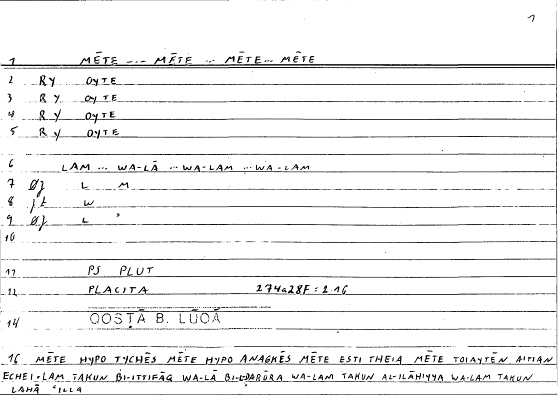 1
1 MĒTE --- MĒTE ... MĒTE... MĒTE
2 RY OYTE
3 RY OYTE
4 RY OYTE
5 RY OYTE
6 LAM ... WA-LĀ ... WA-LAM ... WA-LAM
7 L M
8 W
9 L "
10
11 PS PLUT
12 PLACITA 274a28F = 2.16
14 QOSṬĀ B. LŪQĀ
16 MĒTE HYPO TYCHĒS MĒTE HYPO ANAGKĒS MĒTE ESTI THEIA MĒTE TOIAYTĒN AITIAN
ECHEI = LAM TAKUN BI-ITTIFĀQ WA-LĀ BI-ḌARŪRA WA-LAM TAKUN AL-ILĀHIYYA WA-LAM TAKUN
LAHĀ ʿILLA